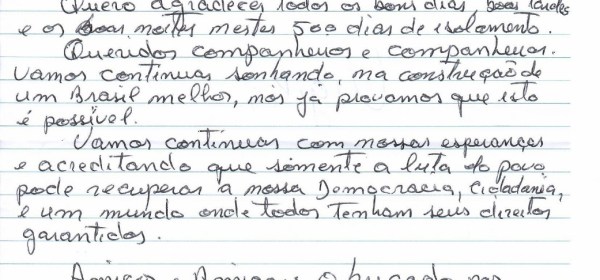 Quero agradecer todos os bons dias, boas tardes
e os boas noites nestes 500 dias de isolamento.
Queridos companheiros e companheiras.
Vamos continuar sonhando, na construção de
um Brasil melhor, nós já provamos que isto
é possível.
Vamos continuar com nossas esperanças
e acreditando que somente a luta do povo
pode recuperar a nossa Democracia, Cidadania,
e um mundo onde todos tenham seus direitos
garantidos.
Amigos e Amigas Obrigado por